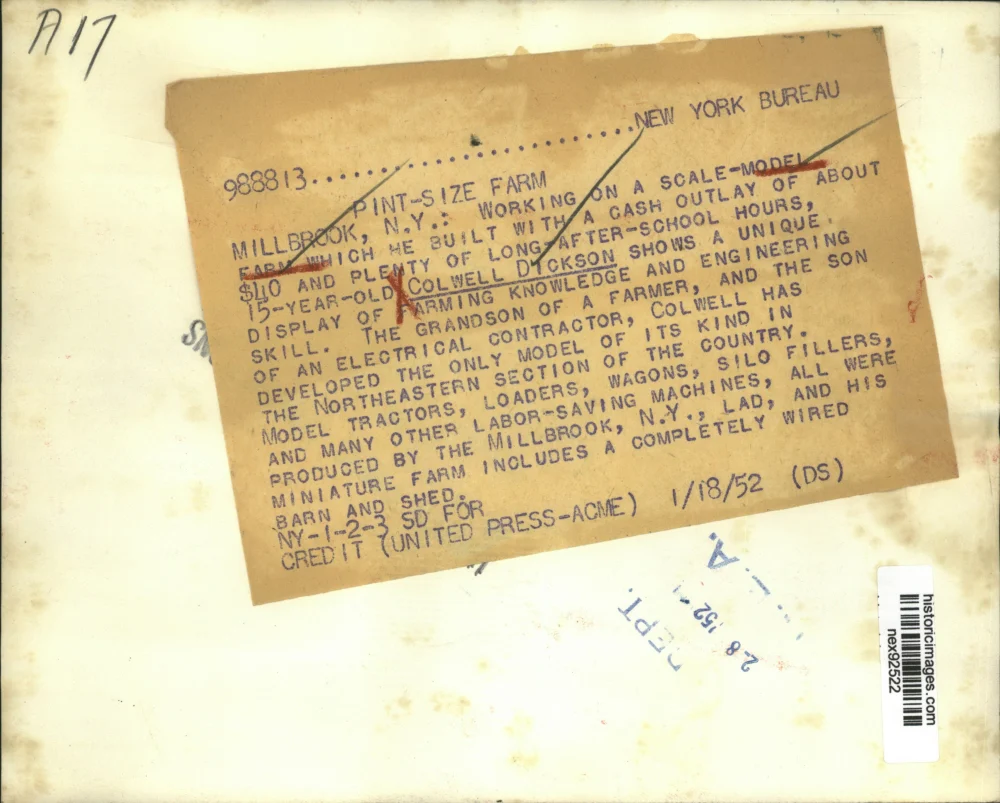 A17
988813..............................NEW YORK BUREAU
PINT-SIZE FARM
MILLBROOK, N.Y.: WORKING ON A SCALE-MODEL
FARM WHICH HE BUILT WITH A CASH OUTLAY OF ABOUT
$40 AND PLENTY OF LONG-AFTER-SCHOOL HOURS,
15-YEAR-OLD COLWELL DICKSON SHOWS A UNIQUE
DISPLAY OF FARMING KNOWLEDGE AND ENGINEERING
SKILL. THE GRANDSON OF A FARMER, AND THE SON
OF AN ELECTRICAL CONTRACTOR, COLWELL HAS
DEVELOPED THE ONLY MODEL OF ITS KIND IN
THE NORTHEASTERN SECTION OF THE COUNTRY.
MODEL TRACTORS, LOADERS, WAGONS, SILO FILLERS,
AND MANY OTHER LABOR-SAVING MACHINES, ALL WERE
PRODUCED BY THE MILLBROOK, N.Y., LAD, AND HIS
MINIATURE FARM INCLUDES A COMPLETELY WIRED
BARN AND SHED.
NY-1-2-3 SD FOR
CREDIT (UNITED PRESS-ACME) 1/18/52 (DS)
DEPT.
2-8 '52
A.
historicimages.com
nex92522